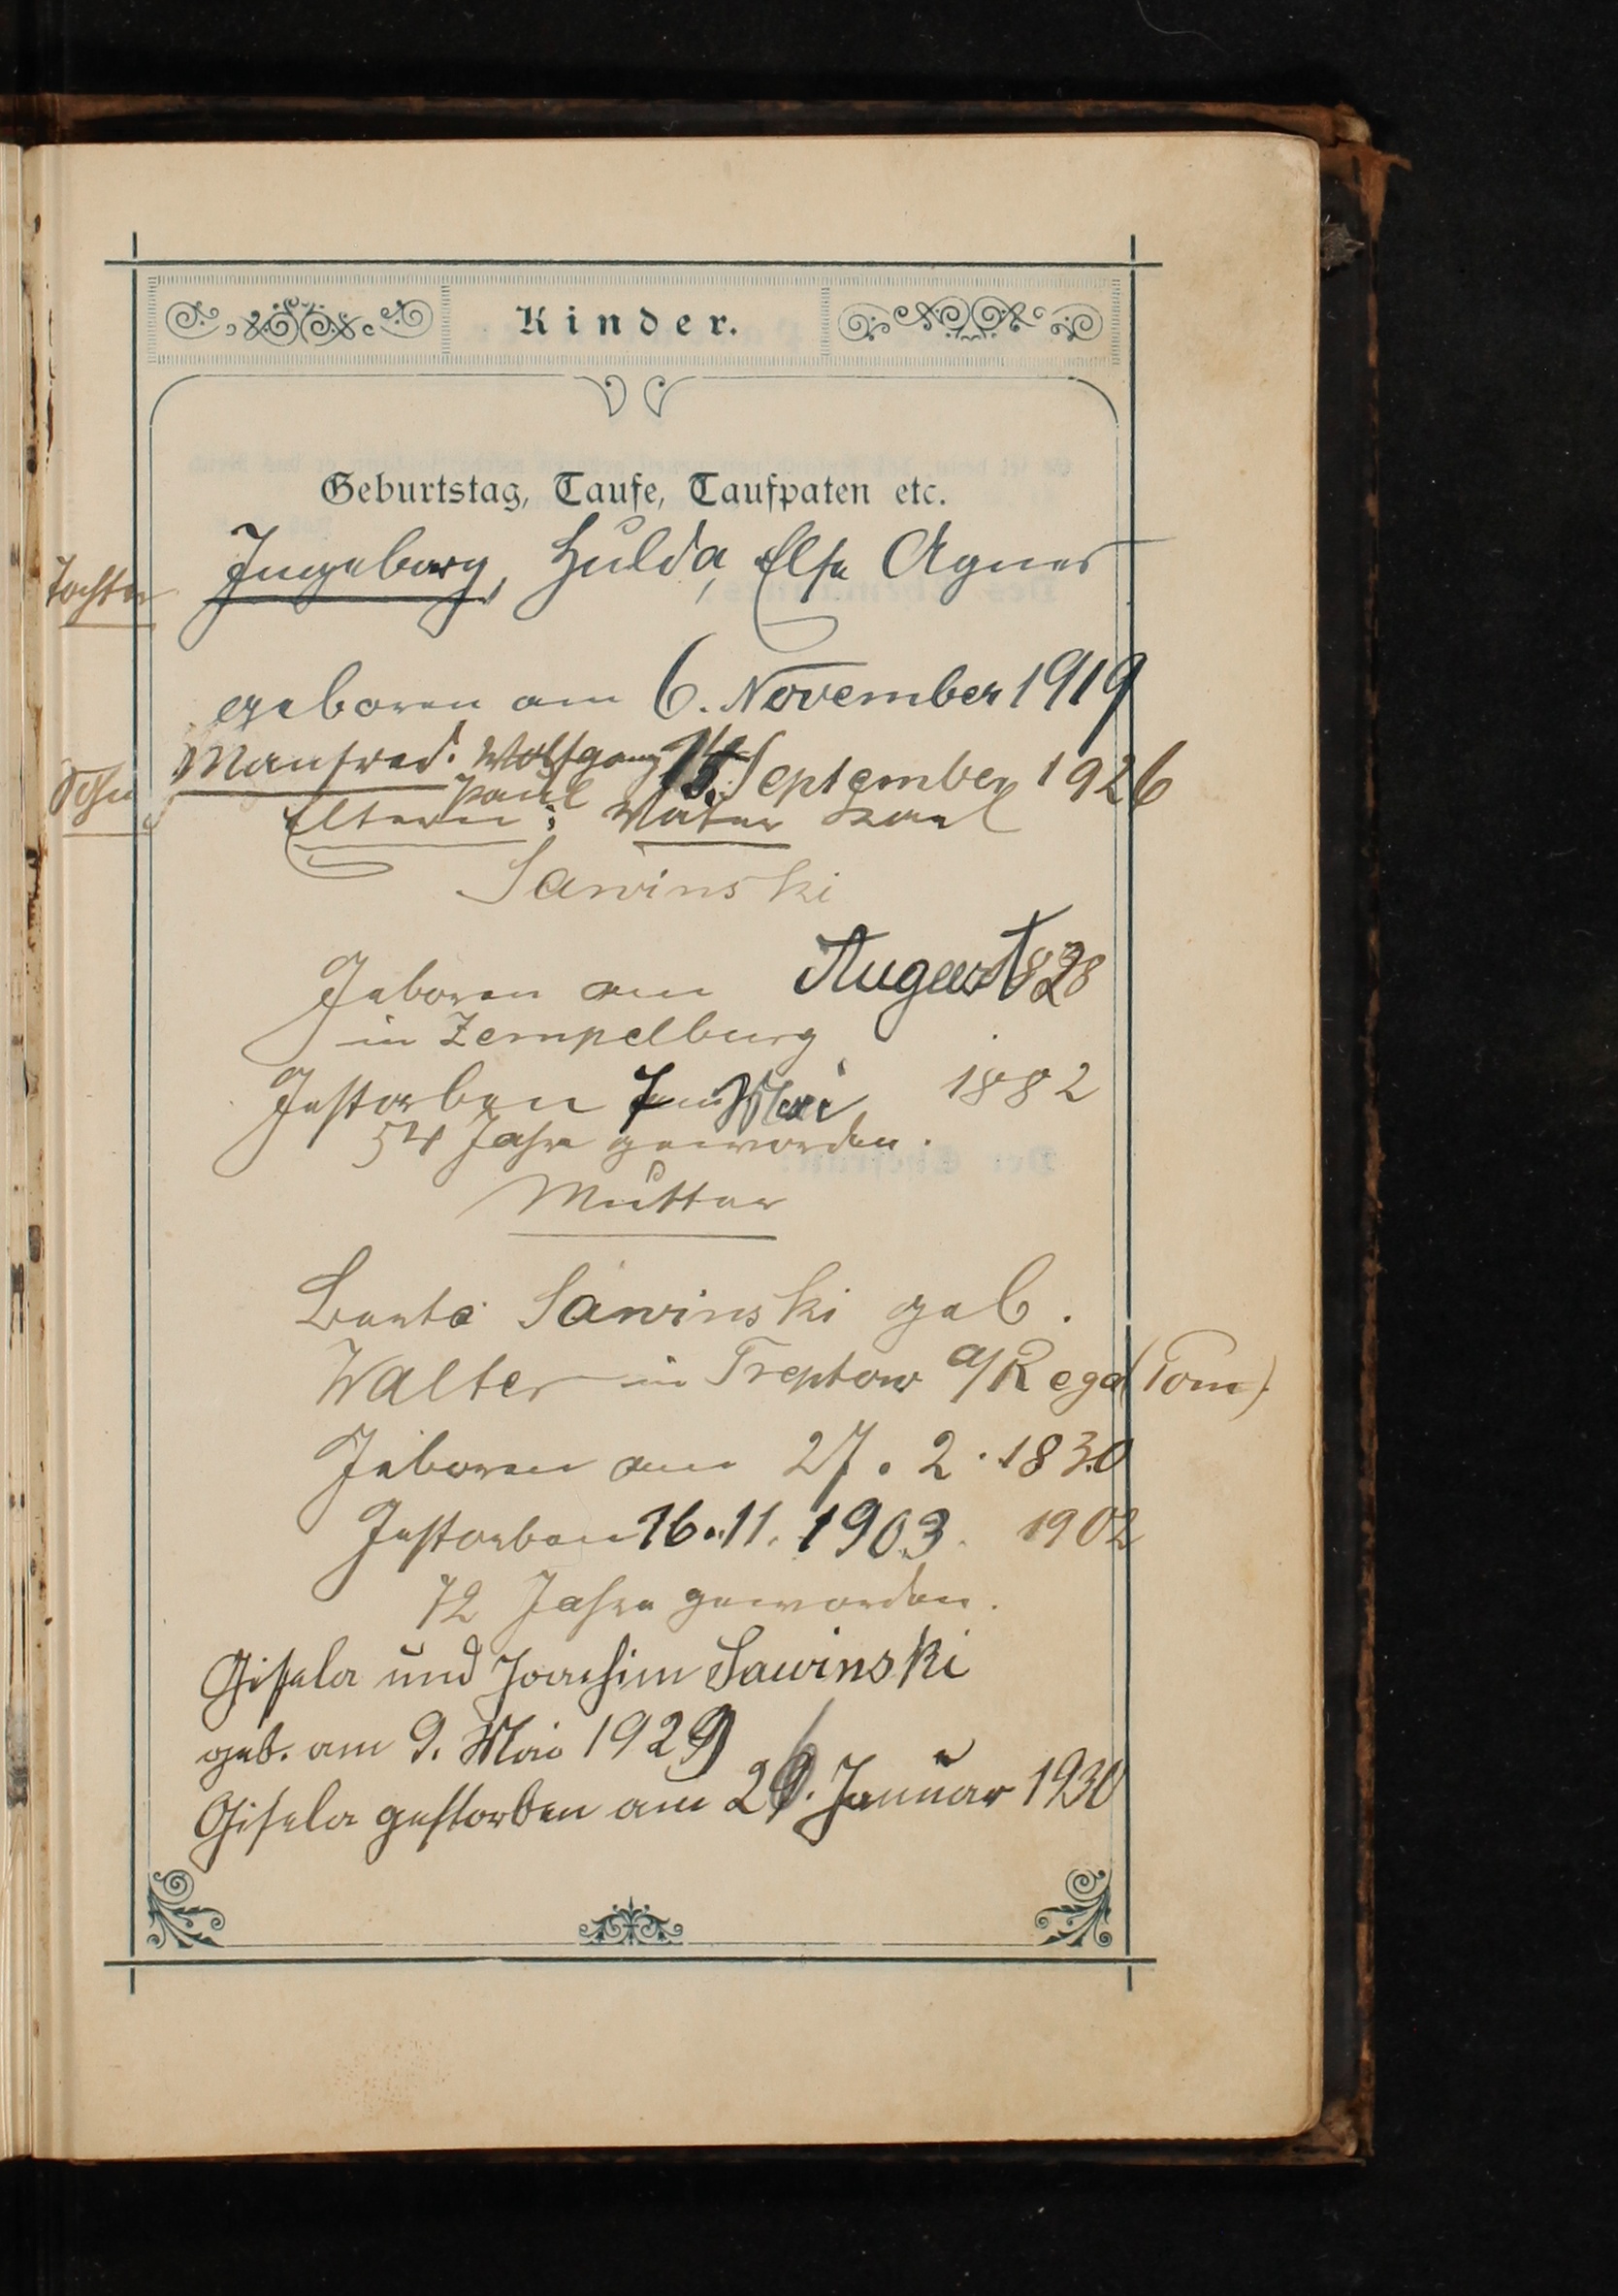 Kinder.
Geburtstag, Taufe, Taufpaten etc.
Tochter
Ingeborg, Hulda, Else Agnes
geboren am 6. November 1919
Sohn
Manfred. Wolfgang 15. September 1926
Paul
Eltern: Vater Karl
Sawinski
Geboren am August 1828
in Zempelburg
Gestorben 7 Mai 1882
54 Jahre geworden.
Mutter
Berta Sawinski geb.
Walter in Treptow a/Rega (Pom).
Geboren am 27. 2. 1830
Gestorben 16. 11. 1903. 1902
72 Jahre geworden.
Gisela und Joachim Sawinski
geb. am 9. Mai 1929
Gisela gestorben am 26. Januar 1930